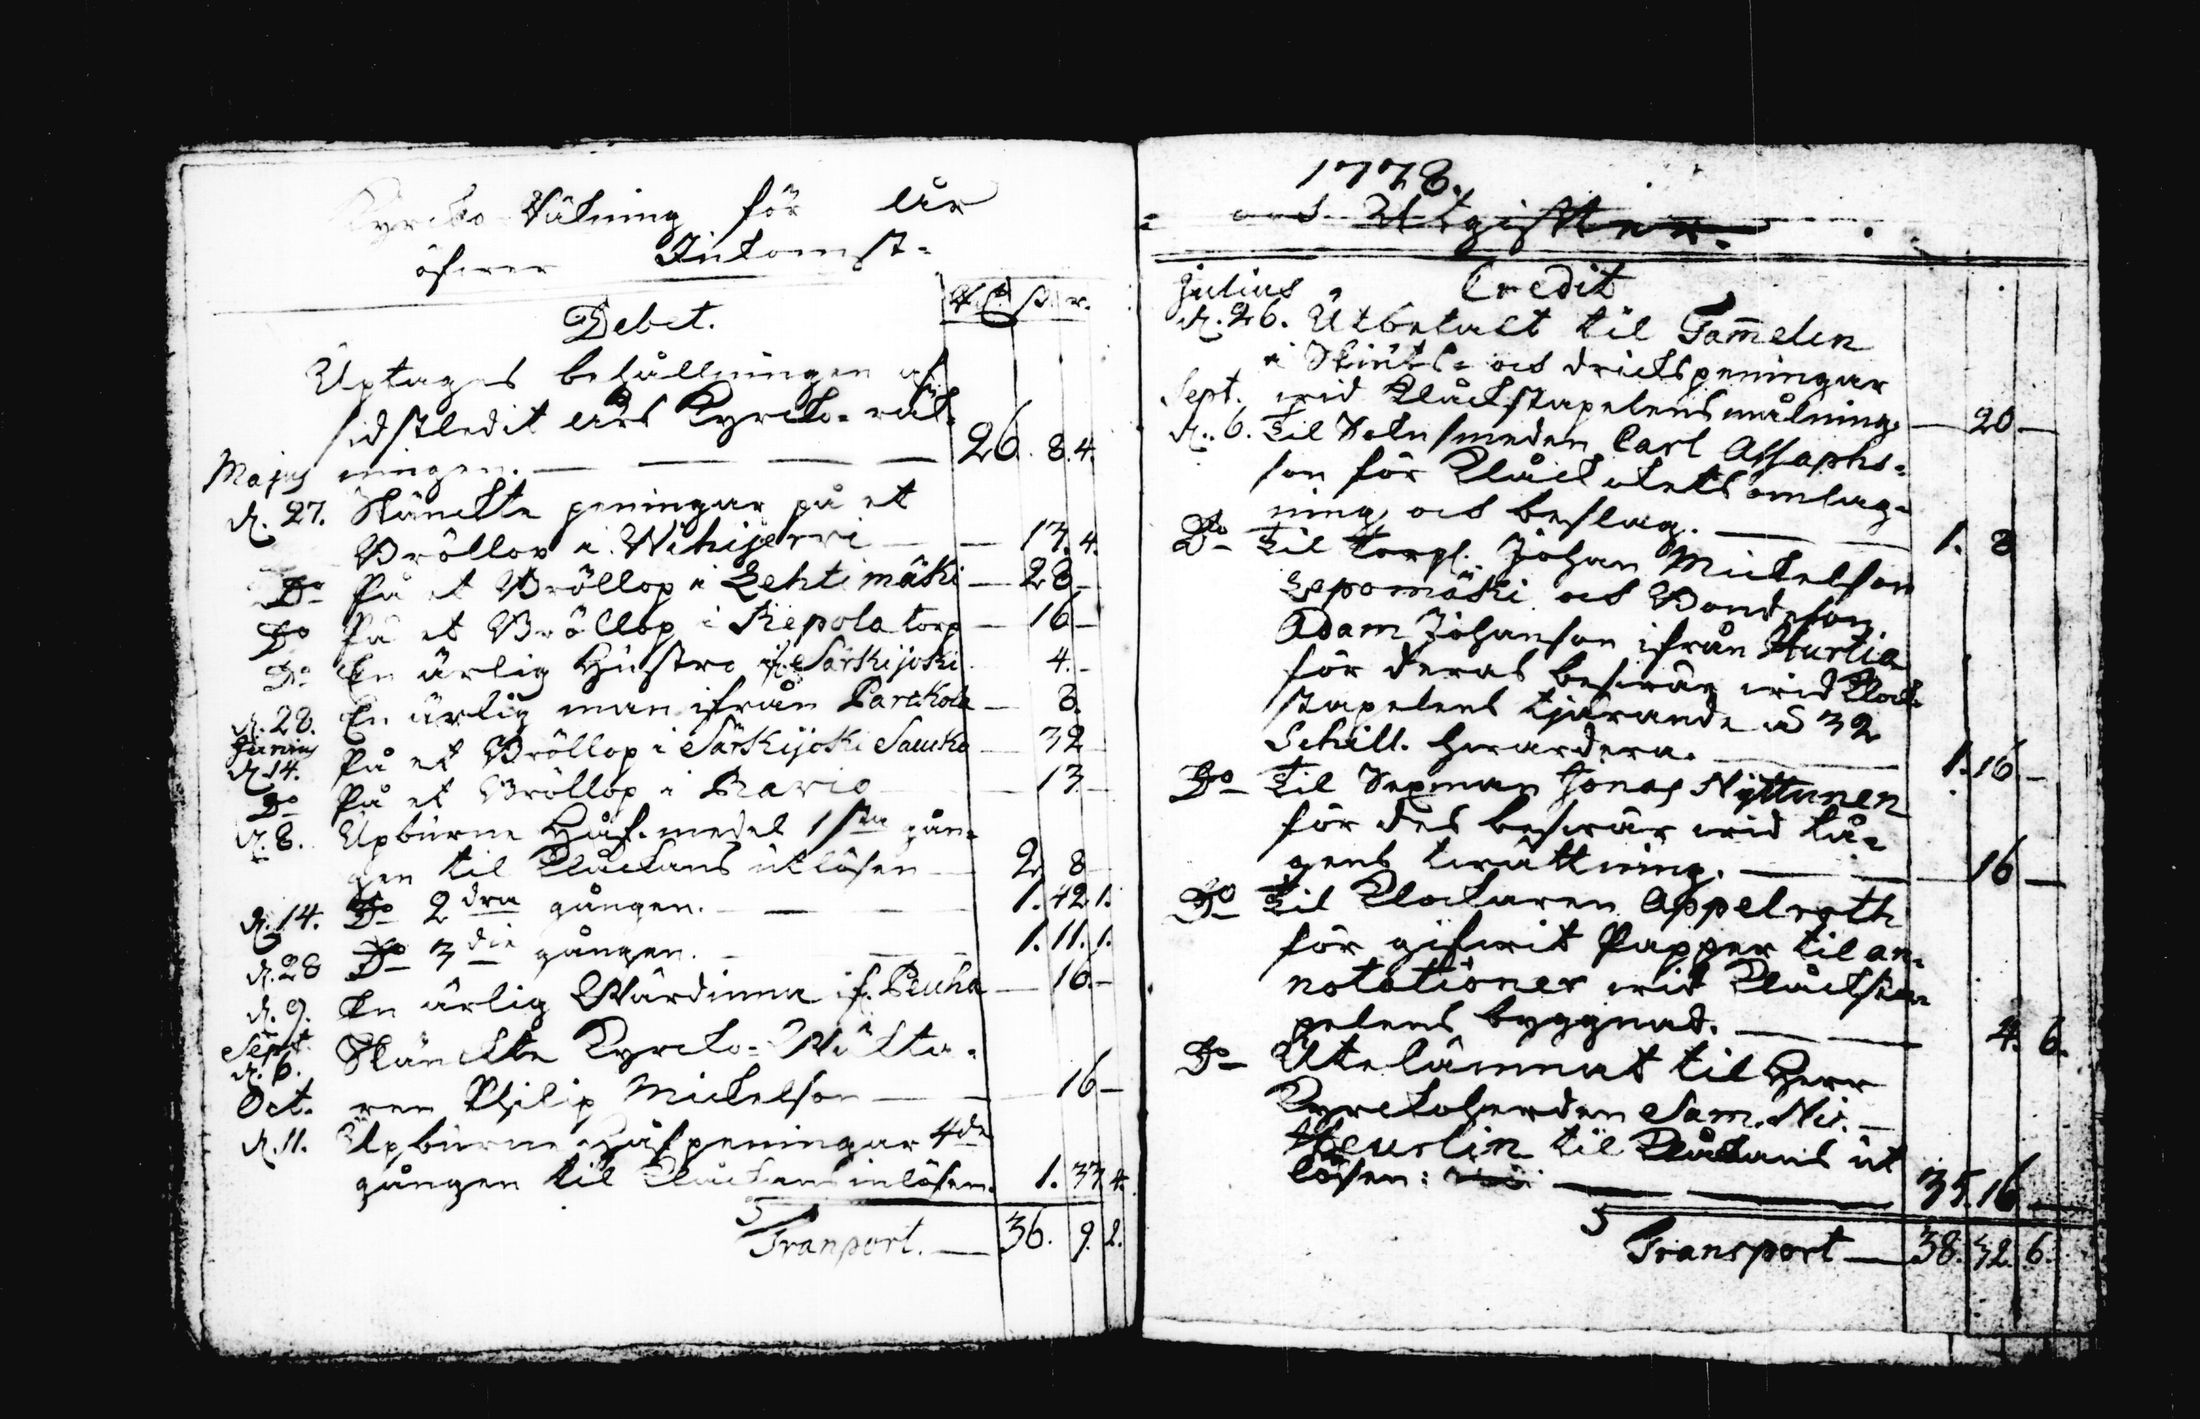 Kyrcko-Räkning för Års
öfwer Inkomst-
Debet.
Rd. s. r.
Uptages behållningen af
sidstledit Års Kyrcko-räk-
ningen. — 26. 8. 4.
Majus
d. 27. Skänckte peningar på et
Bröllop i Wihijerwi — 13. 4.
Do På et Bröllop i Lehtimäki — 28 —
Do På et Bröllop i Repola torp — 16 —
Do En ärlig Hustro if. Särkijoki 4. —
d. 28. En ärlig man ifrån Parckola — 8.
Junius
d. 14. På et Bröllop i Särkijoki Saucko — 32
Do På et Bröllop i — 13 —
d. 8. Upburne Håf-medel 1sta gån-
gen til Klåckans utlösen — 2. 8 —
d. 14. Do 2dra gången. — 1. 42. 1.
d. 28 Do 3die gången. — 1. 11. 1.
d. 9. En ärlig Wärdinna if. Peuha — 16. —
Sept.
d. 6. Skänckte Kyrcko-Wäkta-
ren Philip Mickelson — 16 —
Oct.
d. 11. Upburne Håfpeningar 4de
gången til Klåckans inlösen. 1. 37. 4.
Tranport. — 36. 9. 2.
1778.
och Utgifter.
Credit
Julius
d. 26. Utbetalt til Tam̄elin
i Skänks- och dricks peningar
wid Klåckstapelens målning. — 20 —
Sept.
d. 6. Til Sokn smeden Carl Assaphs-
son för Klåck omlag-
ning och beslag. — 1. 8
Do Til Torp. Johan Mickelson
Lepomäki och Bondeson
Adam Johanson ifrån Hurtia
för deras beswär wid Klock-
stapelens tjärande a 32
Schill. hwardera. — 1. 16. —
Do Til Sexman Jonas Nyttunen
för des beswär wid
— 16 —
Do Til Klockaren Appelroth
för gifwit Papper til an-
notationer wid Klåcksta-
pelens byggnad. — 4. 6.
Do Utelämnat til Herr
Kyrckoherden Sam. Nic.
Heurlin til Klåckans ut
lösen: — 35. 16 —
Transport — 38. 32. 6.